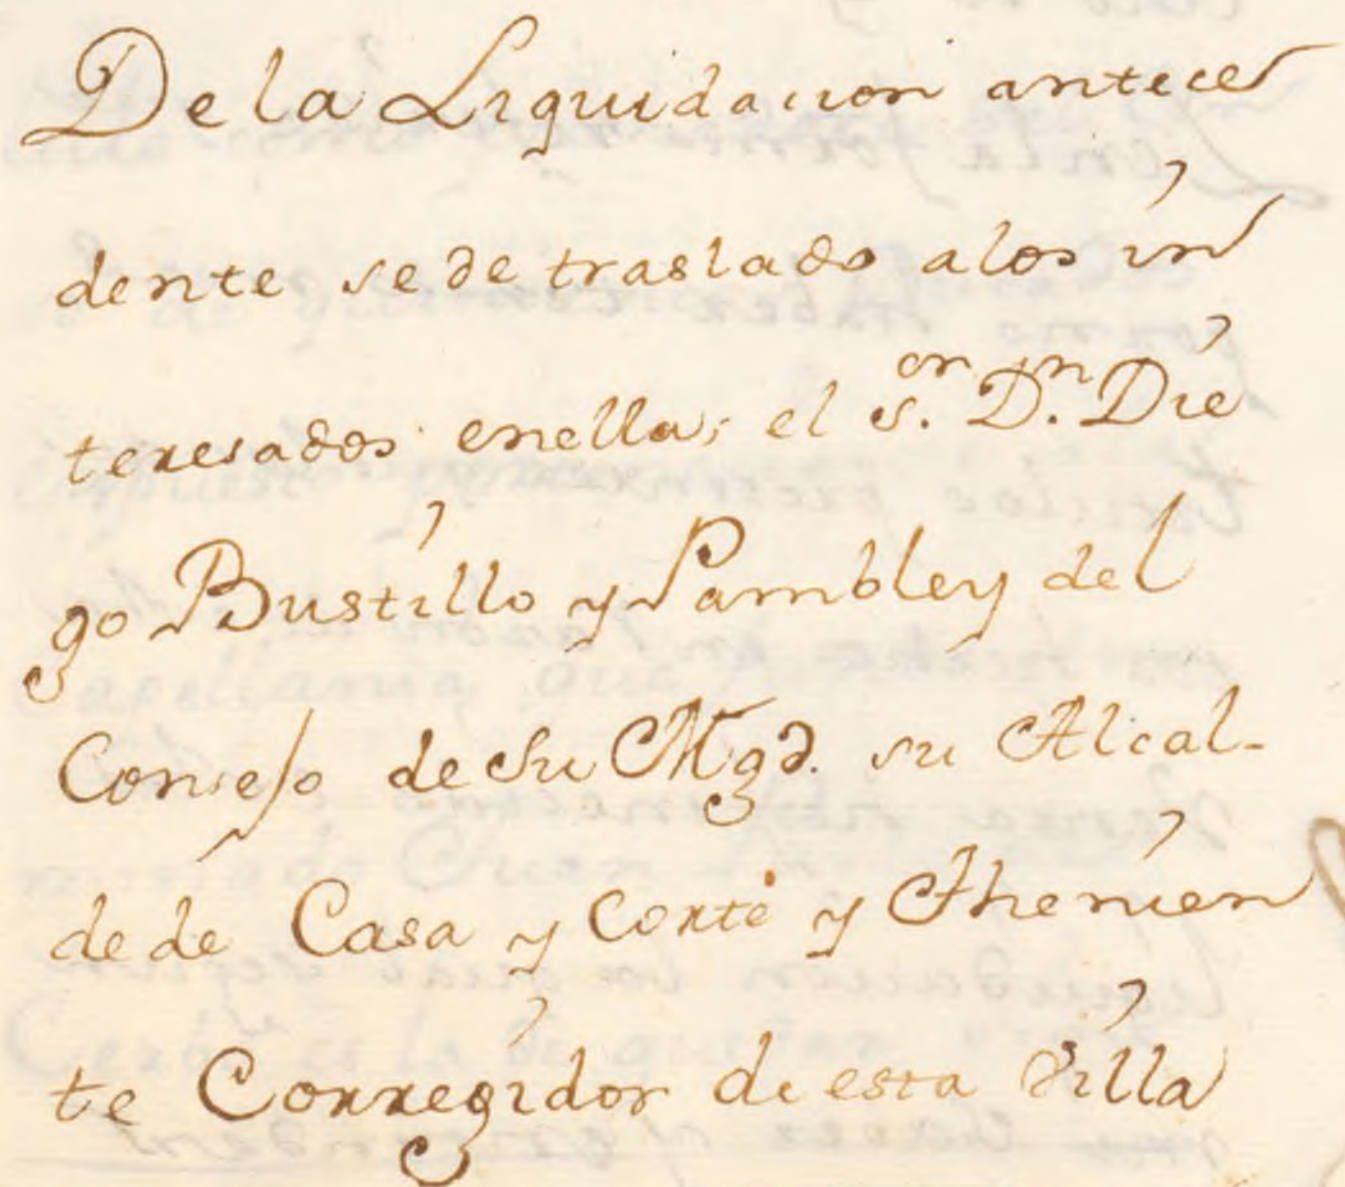 De la Liquidacion antece
dente se de traslado a los in
teresados enella; el S.or D.n Die
go Bustillo y Pambley del
Consejo de Su Mgd. su Alcal-
de de Casa y Corte y Thenien
te Corregidor de esta Villa